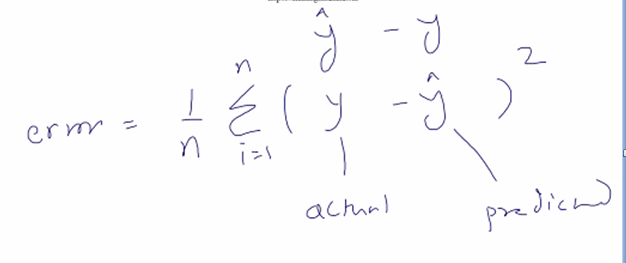 ŷ - y
error = 1/n Σ i=1 n ( y - ŷ )²
actual predicted